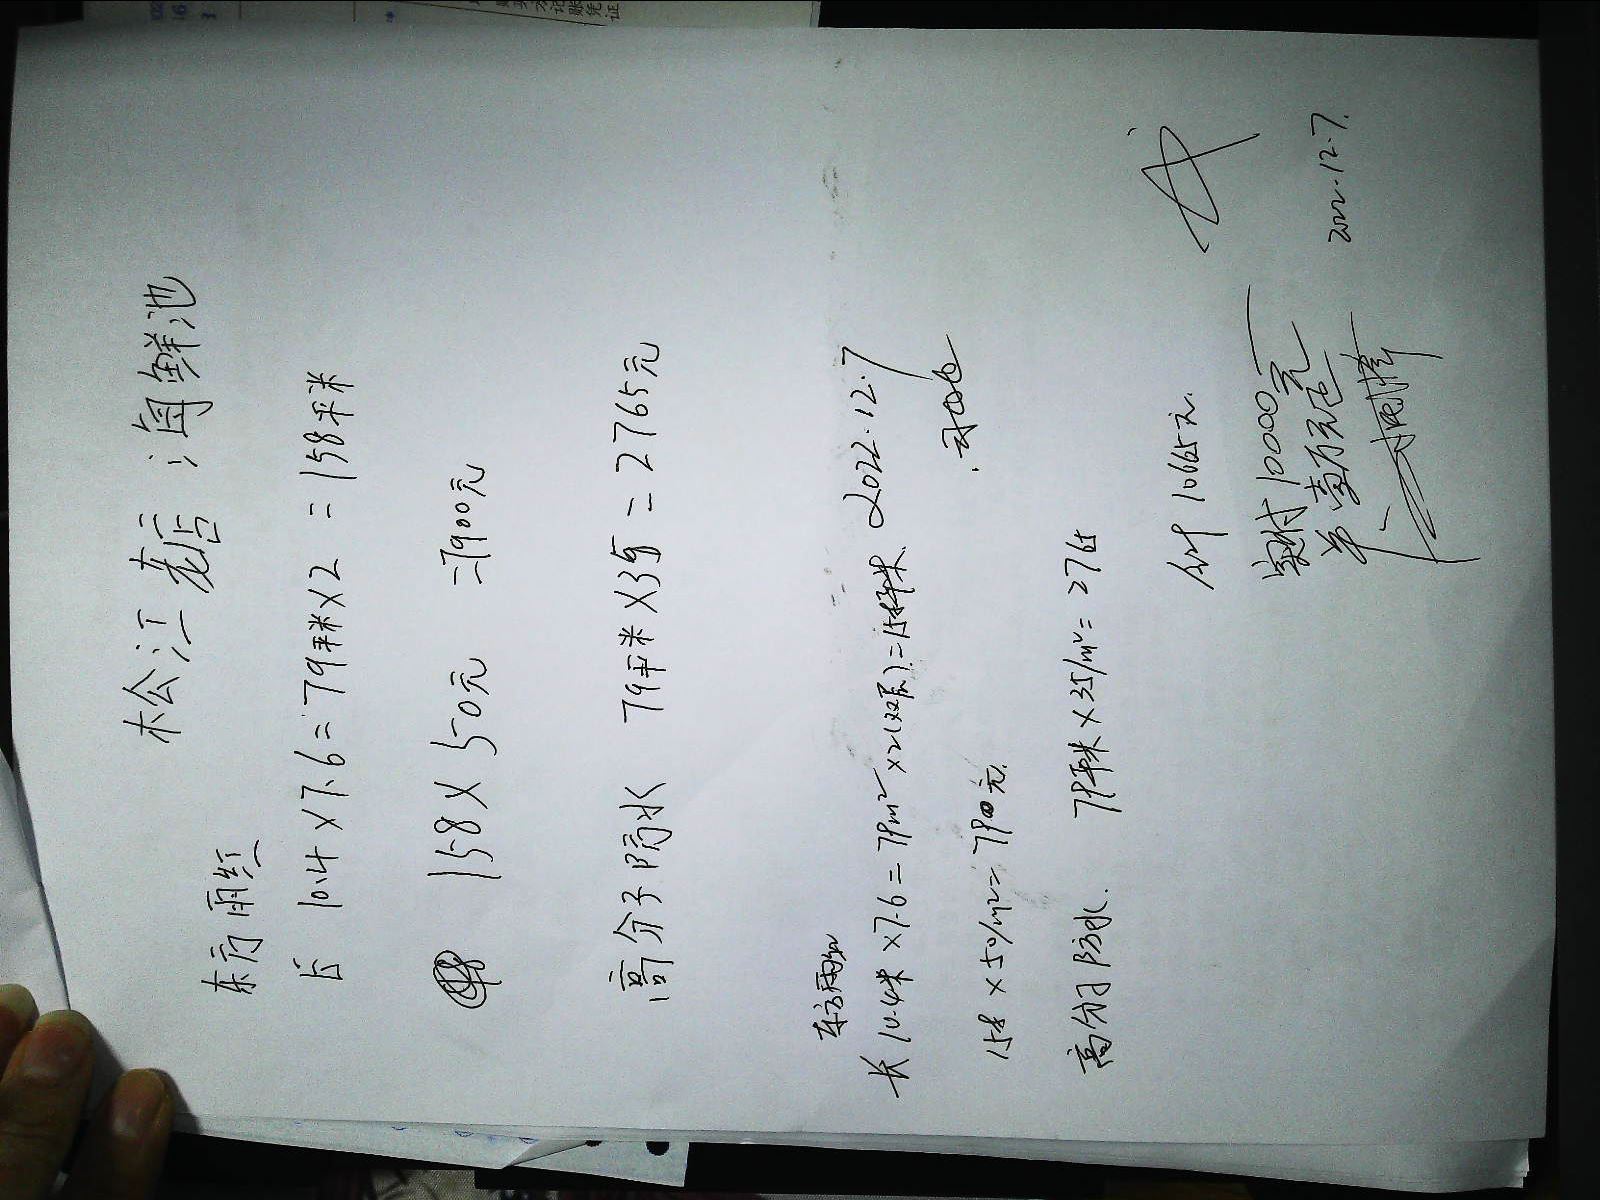 松江老店海鲜池
东方雨虹
长 10.4×7.6=79平米×2=158平米
158×50元 =7900元
高分子防水 79平米×35=2765元
东方雨虹
长10.4米×7.6=79m²×2(双层)=158平米 2022.12.7
158×50/m²=7900元
高分子防水 79平米×35/m²=2765
合计 10665元
实付10000元
2022.12.7